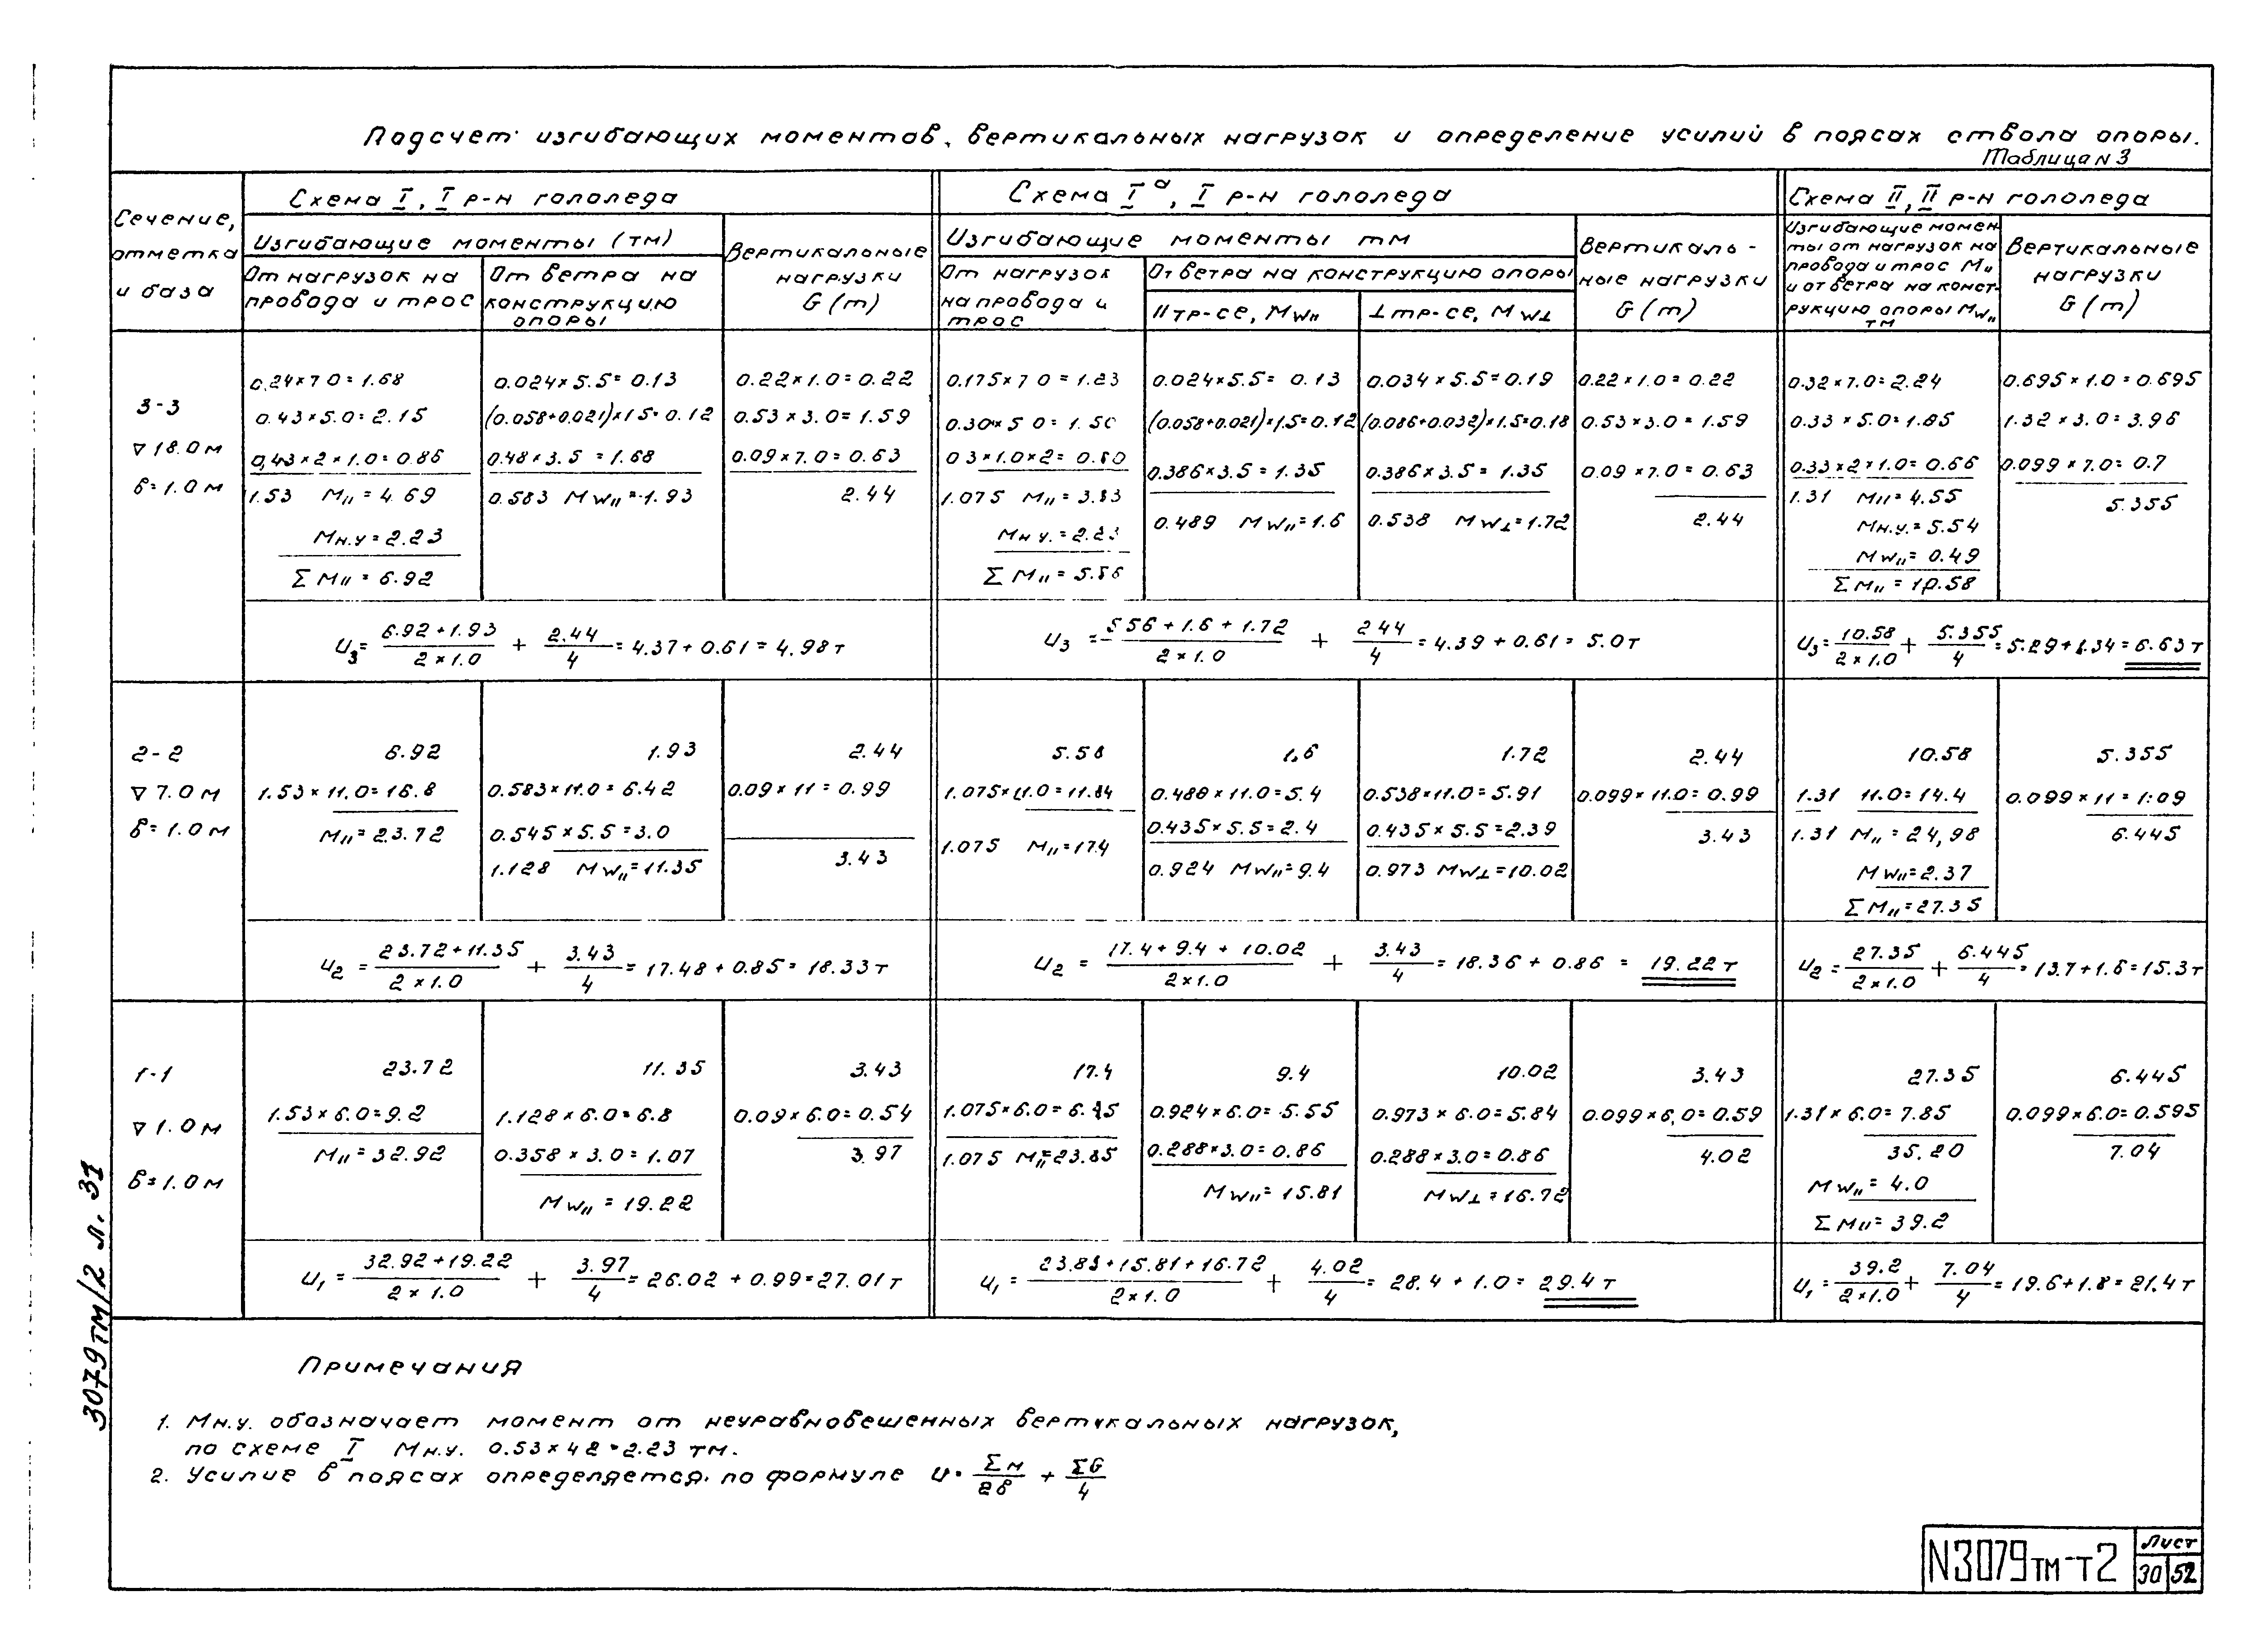 Подсчет изгибающих моментов, вертикальных нагрузок и определение усилий в поясах ствола опоры.
Таблица N 3
Сечение, отметка и база
Схема I, I р-н гололеда
Изгибающие моменты (тм)
От нагрузок на провода и трос
От ветра на конструкцию опоры
Вертикальные нагрузки G (т)
Схема Iª, I р-н гололеда
Изгибающие моменты тм
От нагрузок на провода и трос
От ветра на конструкцию опоры
II тр-се, Mw״
⊥ тр-се, Mw⊥
Вертикаль-ные нагрузки G (т)
Схема II, II р-н гололеда
Изгибающие момен-ты от нагрузок на провода и трос M״ и от ветра на конст-рукцию опоры Mw״ тм
Вертикальные нагрузки G (т)
3-3
▽ 18.0 м
в=1.0 м
0.24×7 0=1.68
0.43×5.0=2.15
0,43×2×1.0=0.86
1.53 M״=4.69
Mн.у=2.23
Σ M״=6.92
0.024×5.5=0.13
(0.058+0.021)×1.5=0.12
0.48×3.5=1.68
0.583 Mw״=1.93
0.22×1.0=0.22
0.53×3.0=1.59
0.09×7.0=0.63
2.44
0.175×7 0=1.23
0.30×5 0=1.50
0 3×1.0×2=0.60
1.075 M״=3.33
Mн у.=2.23
Σ M״=5.56
0.024×5.5=0.13
(0.058+0.021)×1,5=0.12
0.386×3.5=1.35
0.489 Mw״=1.6
0.034×5.5=0.19
(0.086+0.032)×1.5=0.18
0.386×3.5=1.35
0.538 Mw⊥=1.72
0.22×1.0=0.22
0.53×3.0=1.59
0.09×7.0=0.63
2.44
0.32×7.0=2.24
0.33×5.0=1.65
0.33×2×1.0=0.66
1.31 M״=4.55
Mн.у.=5.54
Mw״=0.49
Σ M״=10.58
0.695×1.0=0.695
1.32×3.0=3.96
0.099×7.0=0.7
5.355
U₃=(6.92+1.93)/(2×1.0) + 2.44/4=4.37+0.61=4.98 т
U₃=(5 56+1.6+1.72)/(2×1.0) + 2 44/4=4.39+0.61=5.0 т
U₃=10.58/(2×1.0)+5.355/4=5.29+1.34=6.63 т
2-2
▽ 7.0 м
в=1.0 м
6.92
1.53×11.0=16.8
M״=23.72
1.93
0.583×11.0=6.42
0.545×5.5=3.0
1.128 Mw״=11.35
2.44
0.09×11=0.99
3.43
5.58
1.075×11.0=11.84
1.075 M״=17.4
1,6
0.486×11.0=5.4
0.435×5.5=2.4
0.924 Mw״=9.4
1.72
0.538×11.0=5.91
0.435×5.5=2.39
0.973 Mw⊥=10.02
2.44
0.099×11.0=0.99
3.43
10.58
1.31 11.0=14.4
1.31 M״=24,98
Mw״=2.37
Σ M״=27.35
5.355
0.099×11=1.09
6.445
U₂=(23.72+11.35)/(2×1.0) + 3.43/4=17.48+0.85=18.33 т
U₂=(17.4+9.4+10.02)/(2×1.0) + 3.43/4=18.36+0.86=19.22 т
U₂=27.35/(2×1.0)+6.445/4=13.7+1.6=15.3 т
1-1
▽ 1.0 м
в=1.0 м
23.72
1.53×6.0=9.2
M״=32.92
11.35
1.128×6.0=6.8
0.358×3.0=1.07
Mw״=19.22
3.43
0.09×6.0=0.54
3.97
17.4
1.075×6.0=6.45
1.075 M״=23.85
9.4
0.924×6.0=5.55
0.288×3.0=0.86
Mw״=15.81
10.02
0.973×6.0=5.84
0.288×3.0=0.86
Mw⊥=16.72
3.43
0.099×6,0=0.59
4.02
27.35
1.31×6.0=7.85
35.20
Mw״=4.0
Σ M״=39.2
6.445
0.099×6.0=0.595
7.04
U₁=(32.92+19.22)/(2×1.0) + 3.97/4=26.02+0.99=27.01 т
U₁=(23.85+15.81+16.72)/(2×1.0) + 4.02/4=28.4+1.0=29.4 т
U₁=39.2/(2×1.0)+7.04/4=19.6+1.8=21.4 т
Примечания
1. Mн.у. обозначает момент от неуравновешенных вертикальных нагрузок,
по схеме I Mн.у. 0.53×4 2=2.23 тм.
2. Усилие в поясах определяется по формуле U=ΣM/2в + ΣG/4
3079тм/2 л. 31
N3079тм-т2
Лист
30 52